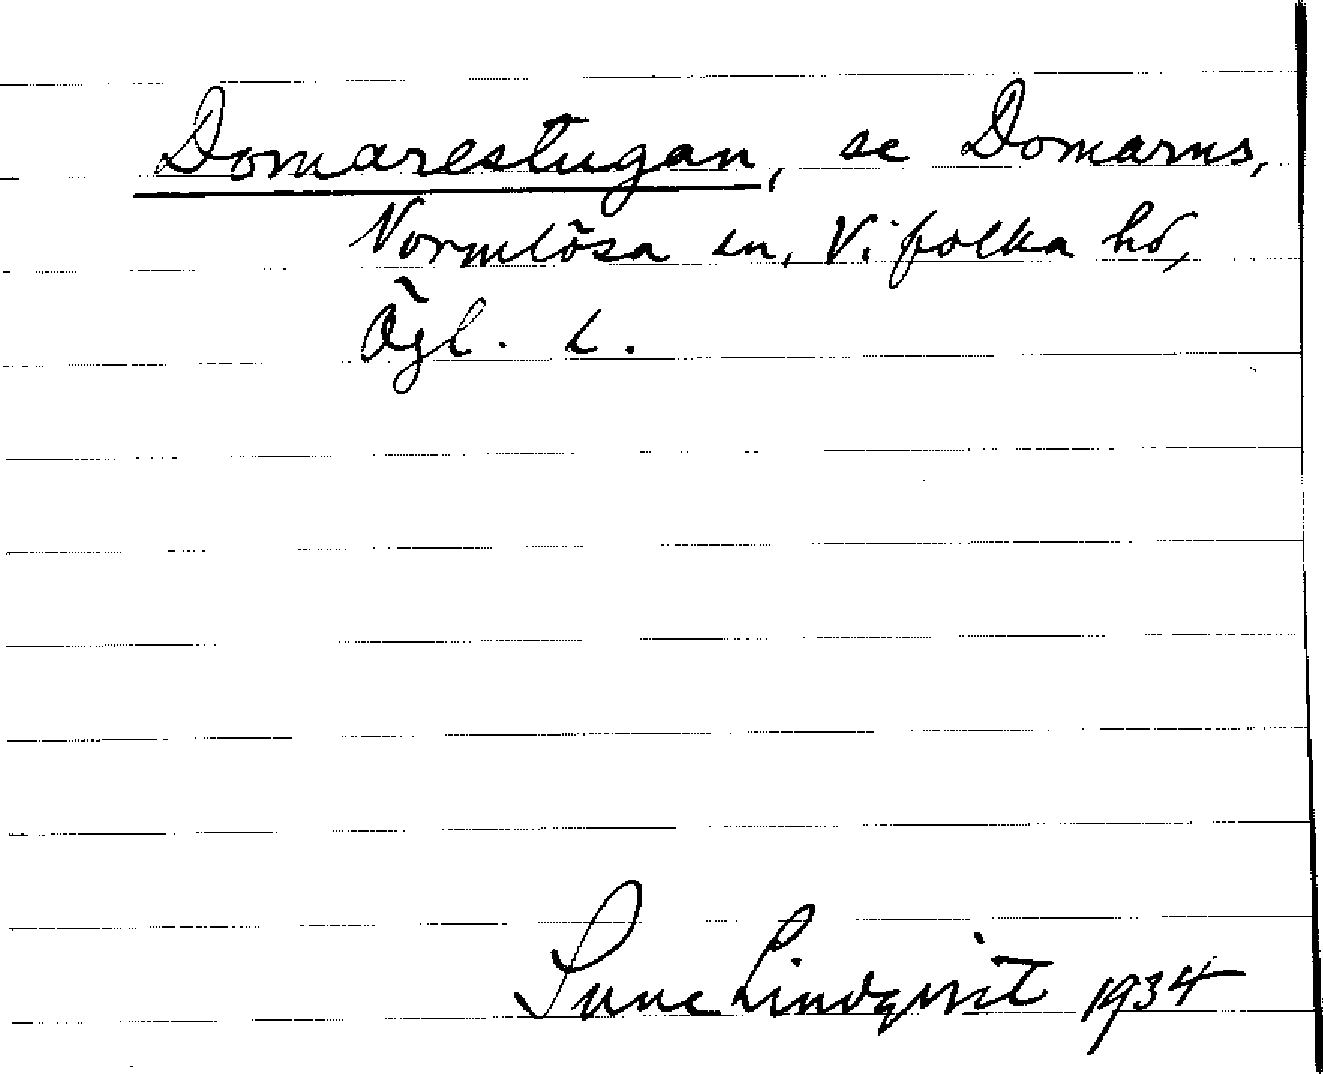 Domarestugan, se Domarns,
Normlösa sn, Vifolka hd,
Ögl. L.
Sune Lindqvist 1934